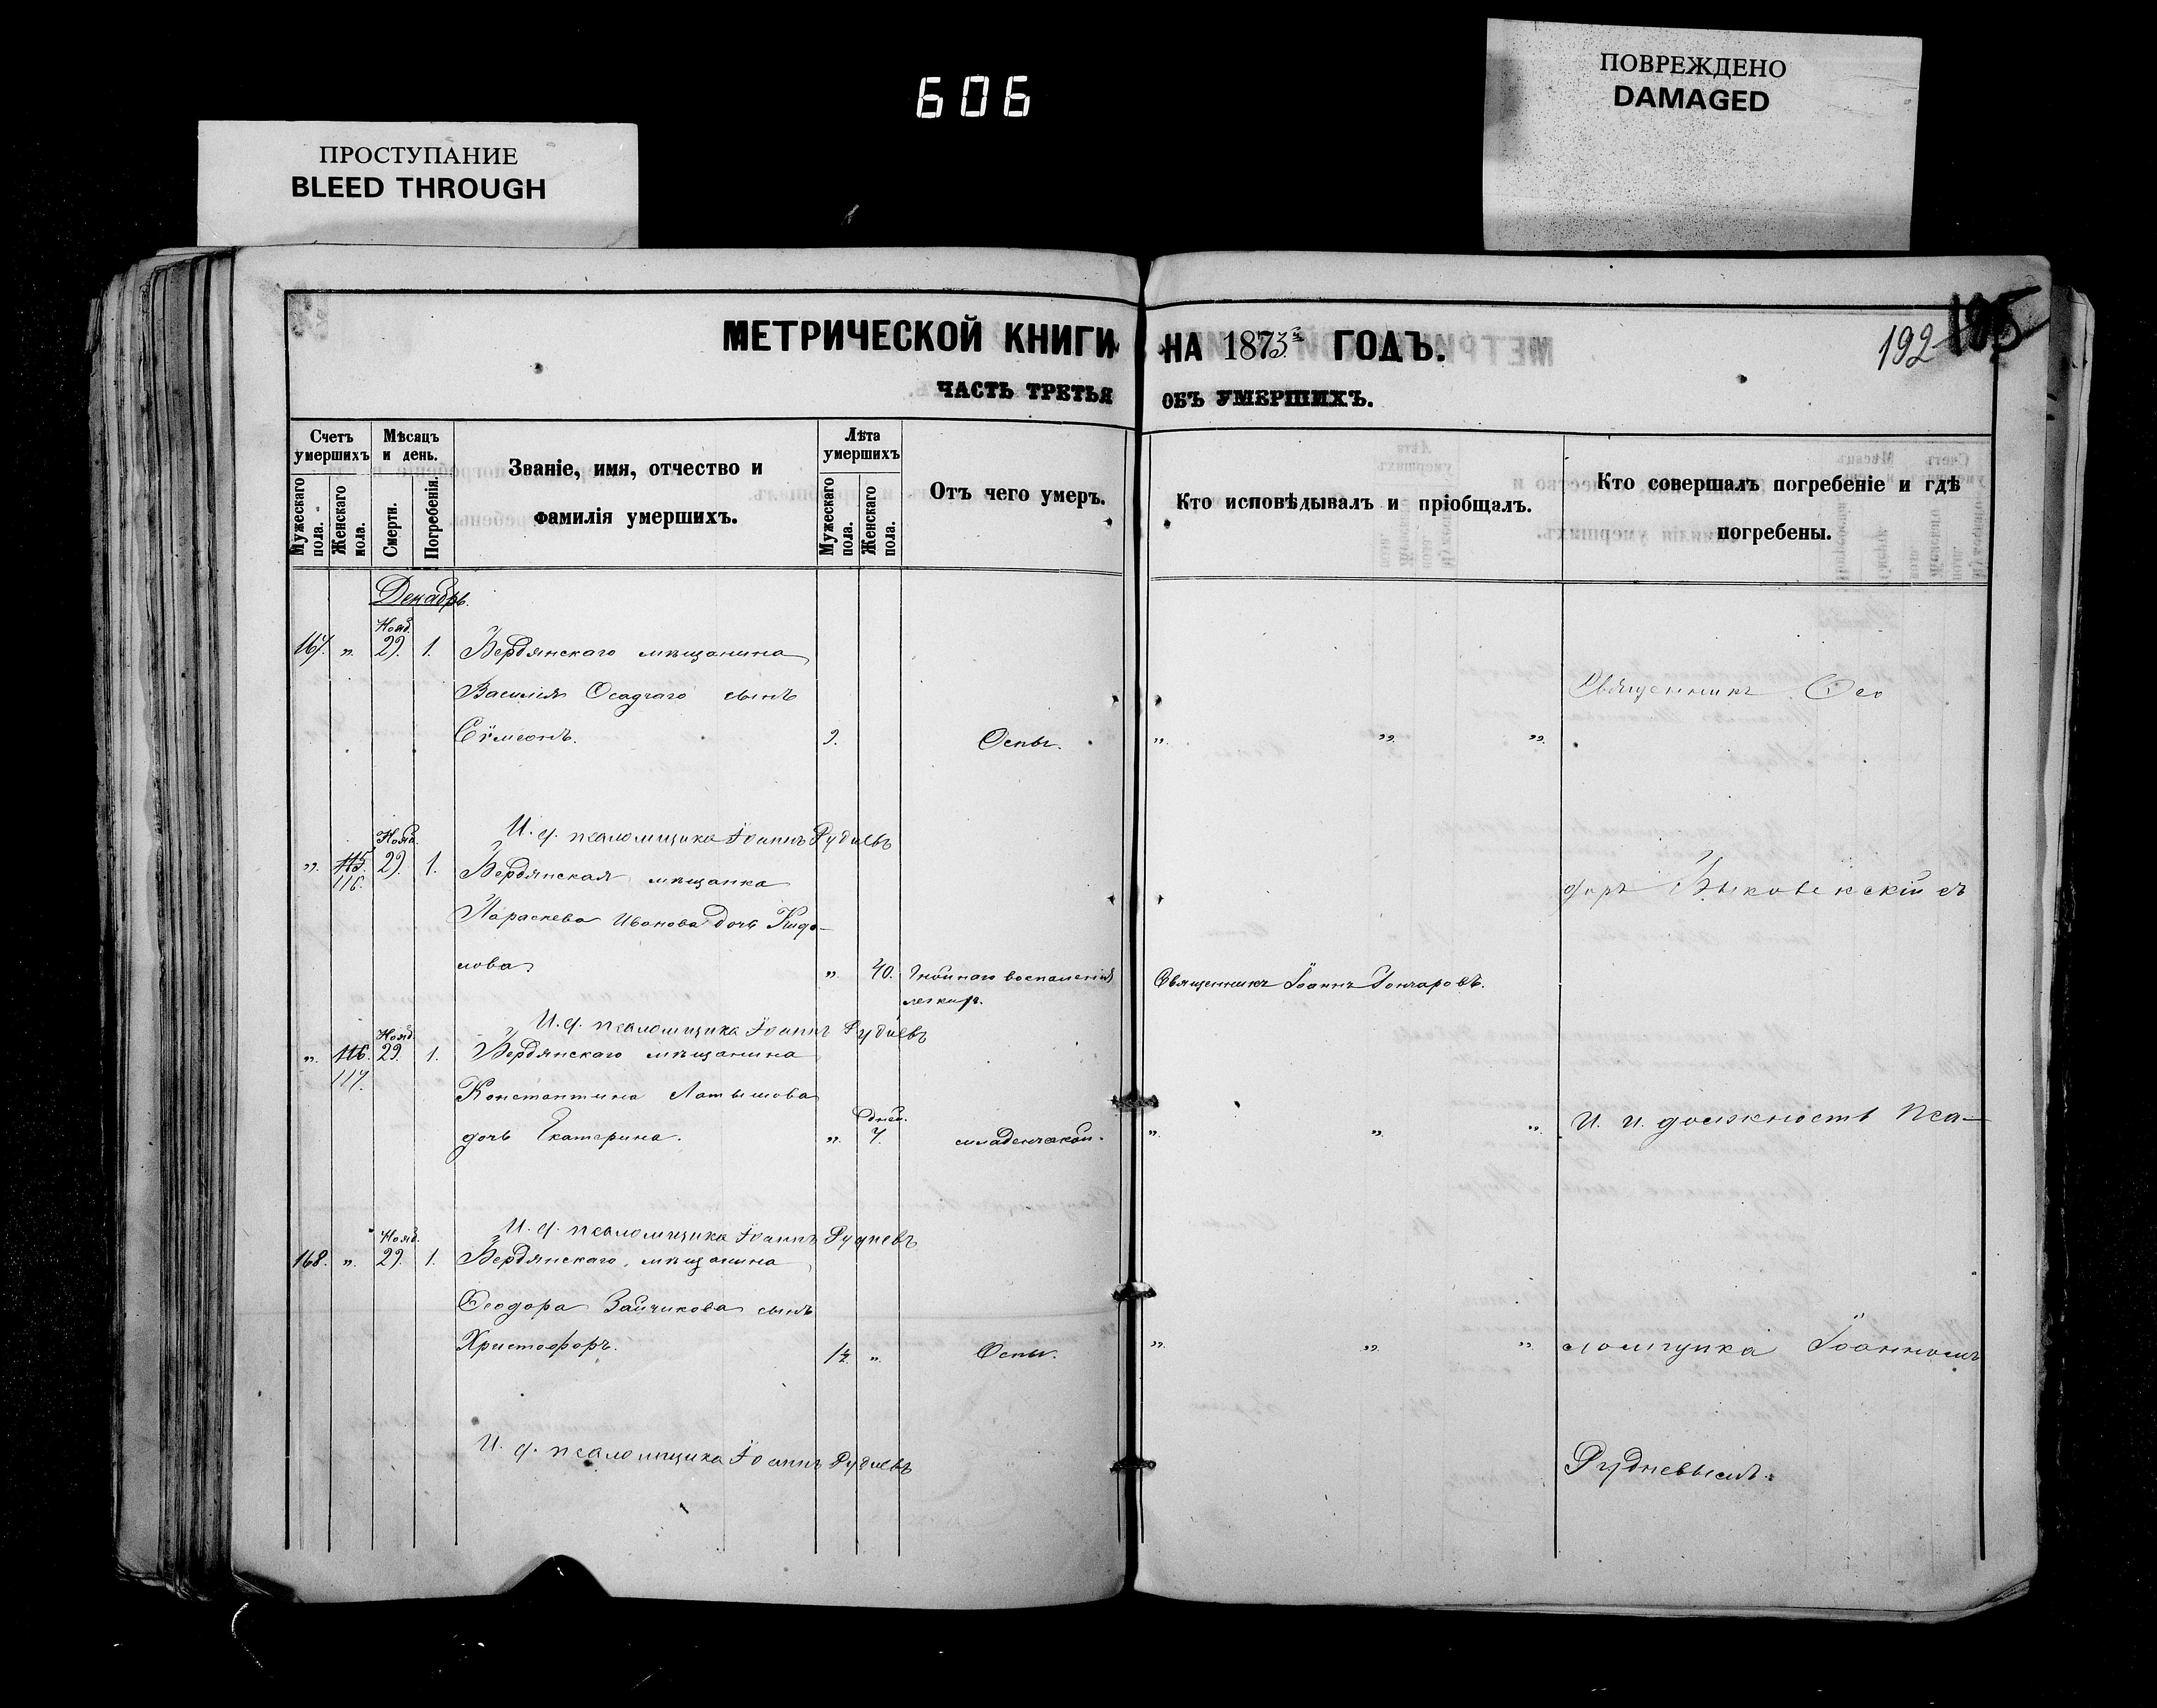 606
ПОВРЕЖДЕНО
DAMAGED
ПРОСТУПАНИЕ
BLEED THROUGH
МЕТРИЧЕСКОЙ КНИГИ НА 1873й ГОДЪ.
192 195
ЧАСТЬ ТРЕТЬЯ ОБЪ УМЕРШИХЪ.
Счетъ умершихъ
Мужескаго пола.
Женскаго пола.
Мѣсяцъ и день.
Смерти.
Погребенія.
Званіе, имя, отчество и
фамилія умершихъ.
Лѣта умершихъ
Мужескаго пола.
Женскаго пола.
Отъ чего умеръ.
Кто исповѣдывалъ и пріобщалъ.
Кто совершалъ погребеніе и гдѣ
погребены.
Декабрь.
Нояб.
167. „ 29. 1. Бердянскаго мѣщанина
Василія Осадчаго сынъ
Сѵмеонъ. 2. Оспы. „ „ „
И. д. псаломщика Іоаннъ Рудневъ
Нояб.
„ 115. 29. 1. Бердянская мѣщанка
116.
Параскева Иванова дочь
лова „ 40. Гнойнаго воспаленія Священникъ Іоаннъ Гончаровъ.
легкихъ.
И. д. псаломщика Іоаннъ Рудневъ
Нояб.
„ 116. 29. 1. Бердянскаго мѣщанина
117.
Константина Латышова
дней.
дочь Екатерина. „ 7. младенческой. „ „ „
И. д. псаломщика Іоаннъ Рудневъ
Нояб.
168. „ 29. 1. Бердянскаго мѣщанина
Ѳеодора Зайчикова сынъ
Христофоръ. 1½ „ Оспы. „ „ „
И. д. псаломщика Іоаннъ Рудневъ
Священникъ Ѳео
доръ Быковскій съ
и. и. должность пса-
ломщика Іоанномъ
Рудневымъ.